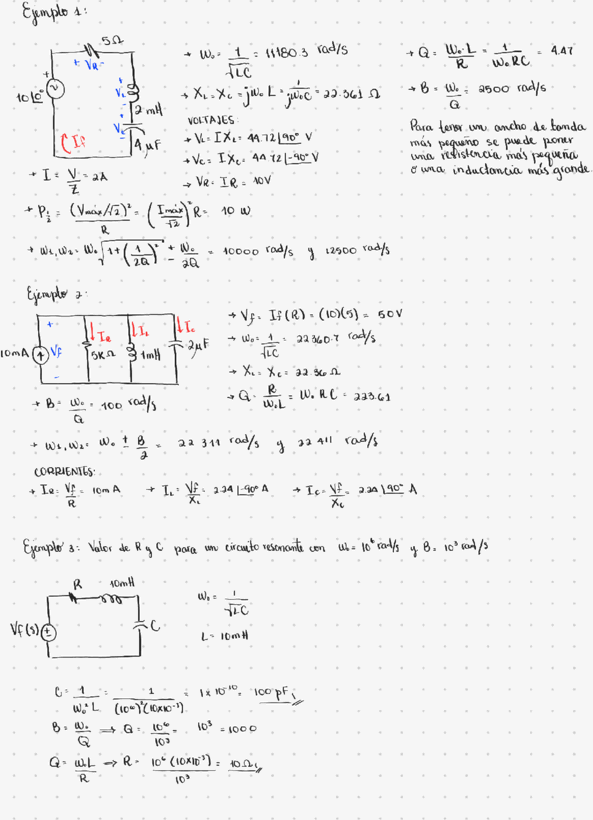 Ejemplo 1:
5Ω
+ VR -
10∠0°
+ VL -
2 mH
+ Vc -
4 μF
If
→ ω₀ = 1/√LC = 11180.3 rad/s
→ XL = Xc = jω₀L = 1/jω₀C = 22.361 Ω
VOLTAJES
→ VL = I XL = 44.72∠90° V
→ Vc = I Xc = 44.72∠-90° V
→ VR = I R = 10V
→ Q = ω₀·L/R = 1/ω₀RC = 4.47
→ B = ω₀/Q = 2500 rad/s
Para tener un ancho de banda
más pequeño se puede poner
una resistencia más pequeña
o una inductancia más grande.
→ I = V/Z = 2A
→ P½ = (Vmáx/√2)²/R = (Imáx/√2)² R = 10 W
→ ω₁,ω₂ = ω₀ √1+(1/2Q)² ± ω₀/2Q = 10000 rad/s y 12500 rad/s
Ejemplo 2:
10mA
+ Vf -
IR
5KΩ
IL
1mH
Ic
2μF
→ Vf = If(R) = (10)(5) = 50V
→ ω₀ = 1/√LC = 22360.7 rad/s
→ XL = Xc = 22.36 Ω
→ Q = R/ω₀L = ω₀RC = 223.61
→ B = ω₀/Q = 100 rad/s
→ ω₁,ω₂ = ω₀ ± B/2 = 22 311 rad/s y 22 411 rad/s
CORRIENTES:
→ IR = Vf/R = 10mA → IL = Vf/XL = 2.24∠-90° A → Ic = Vf/Xc = 2.24∠90° A
Ejemplo 3: Valor de R y C para un circuito resonante con ω₀ = 10⁶ rad/s y B = 10³ rad/s
R 10mH
Vf(s)
C
ω₀ = 1/√LC
L = 10mH
C = 1/ω₀²L = 1/(10⁶)²(10x10⁻³) = 1x10⁻¹⁰ = 100pF
B = ω₀/Q ⟹ Q = 10⁶/10³ = 10³ = 1000
Q = ω₀L/R → R = 10⁶(10x10⁻³)/10³ = 10Ω